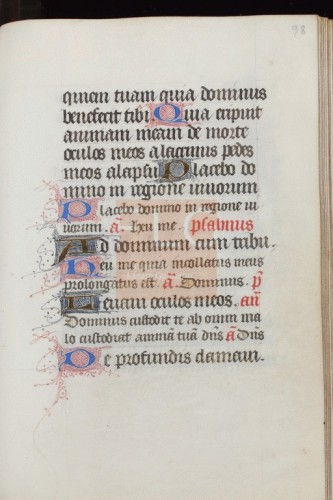 98
quiem tuam quia dominus
benefecit tibi Quia eripuit
animam meam de morte
oculos meos alacrimis pedes
meos alapsu Placebo do
mino in regione uiuorum
Placebo domino in regione ui
uorum. a. Heu me. psalmus
Ad dominum cum tribu
Heu me quia incollatus meus
prolongatus est a. Dominus. p
Leuaui oculos meos. an
Dominus custodit te ab omni ma
lo custodiat animã tuã dñs a Dñs
De profundis clamaui.